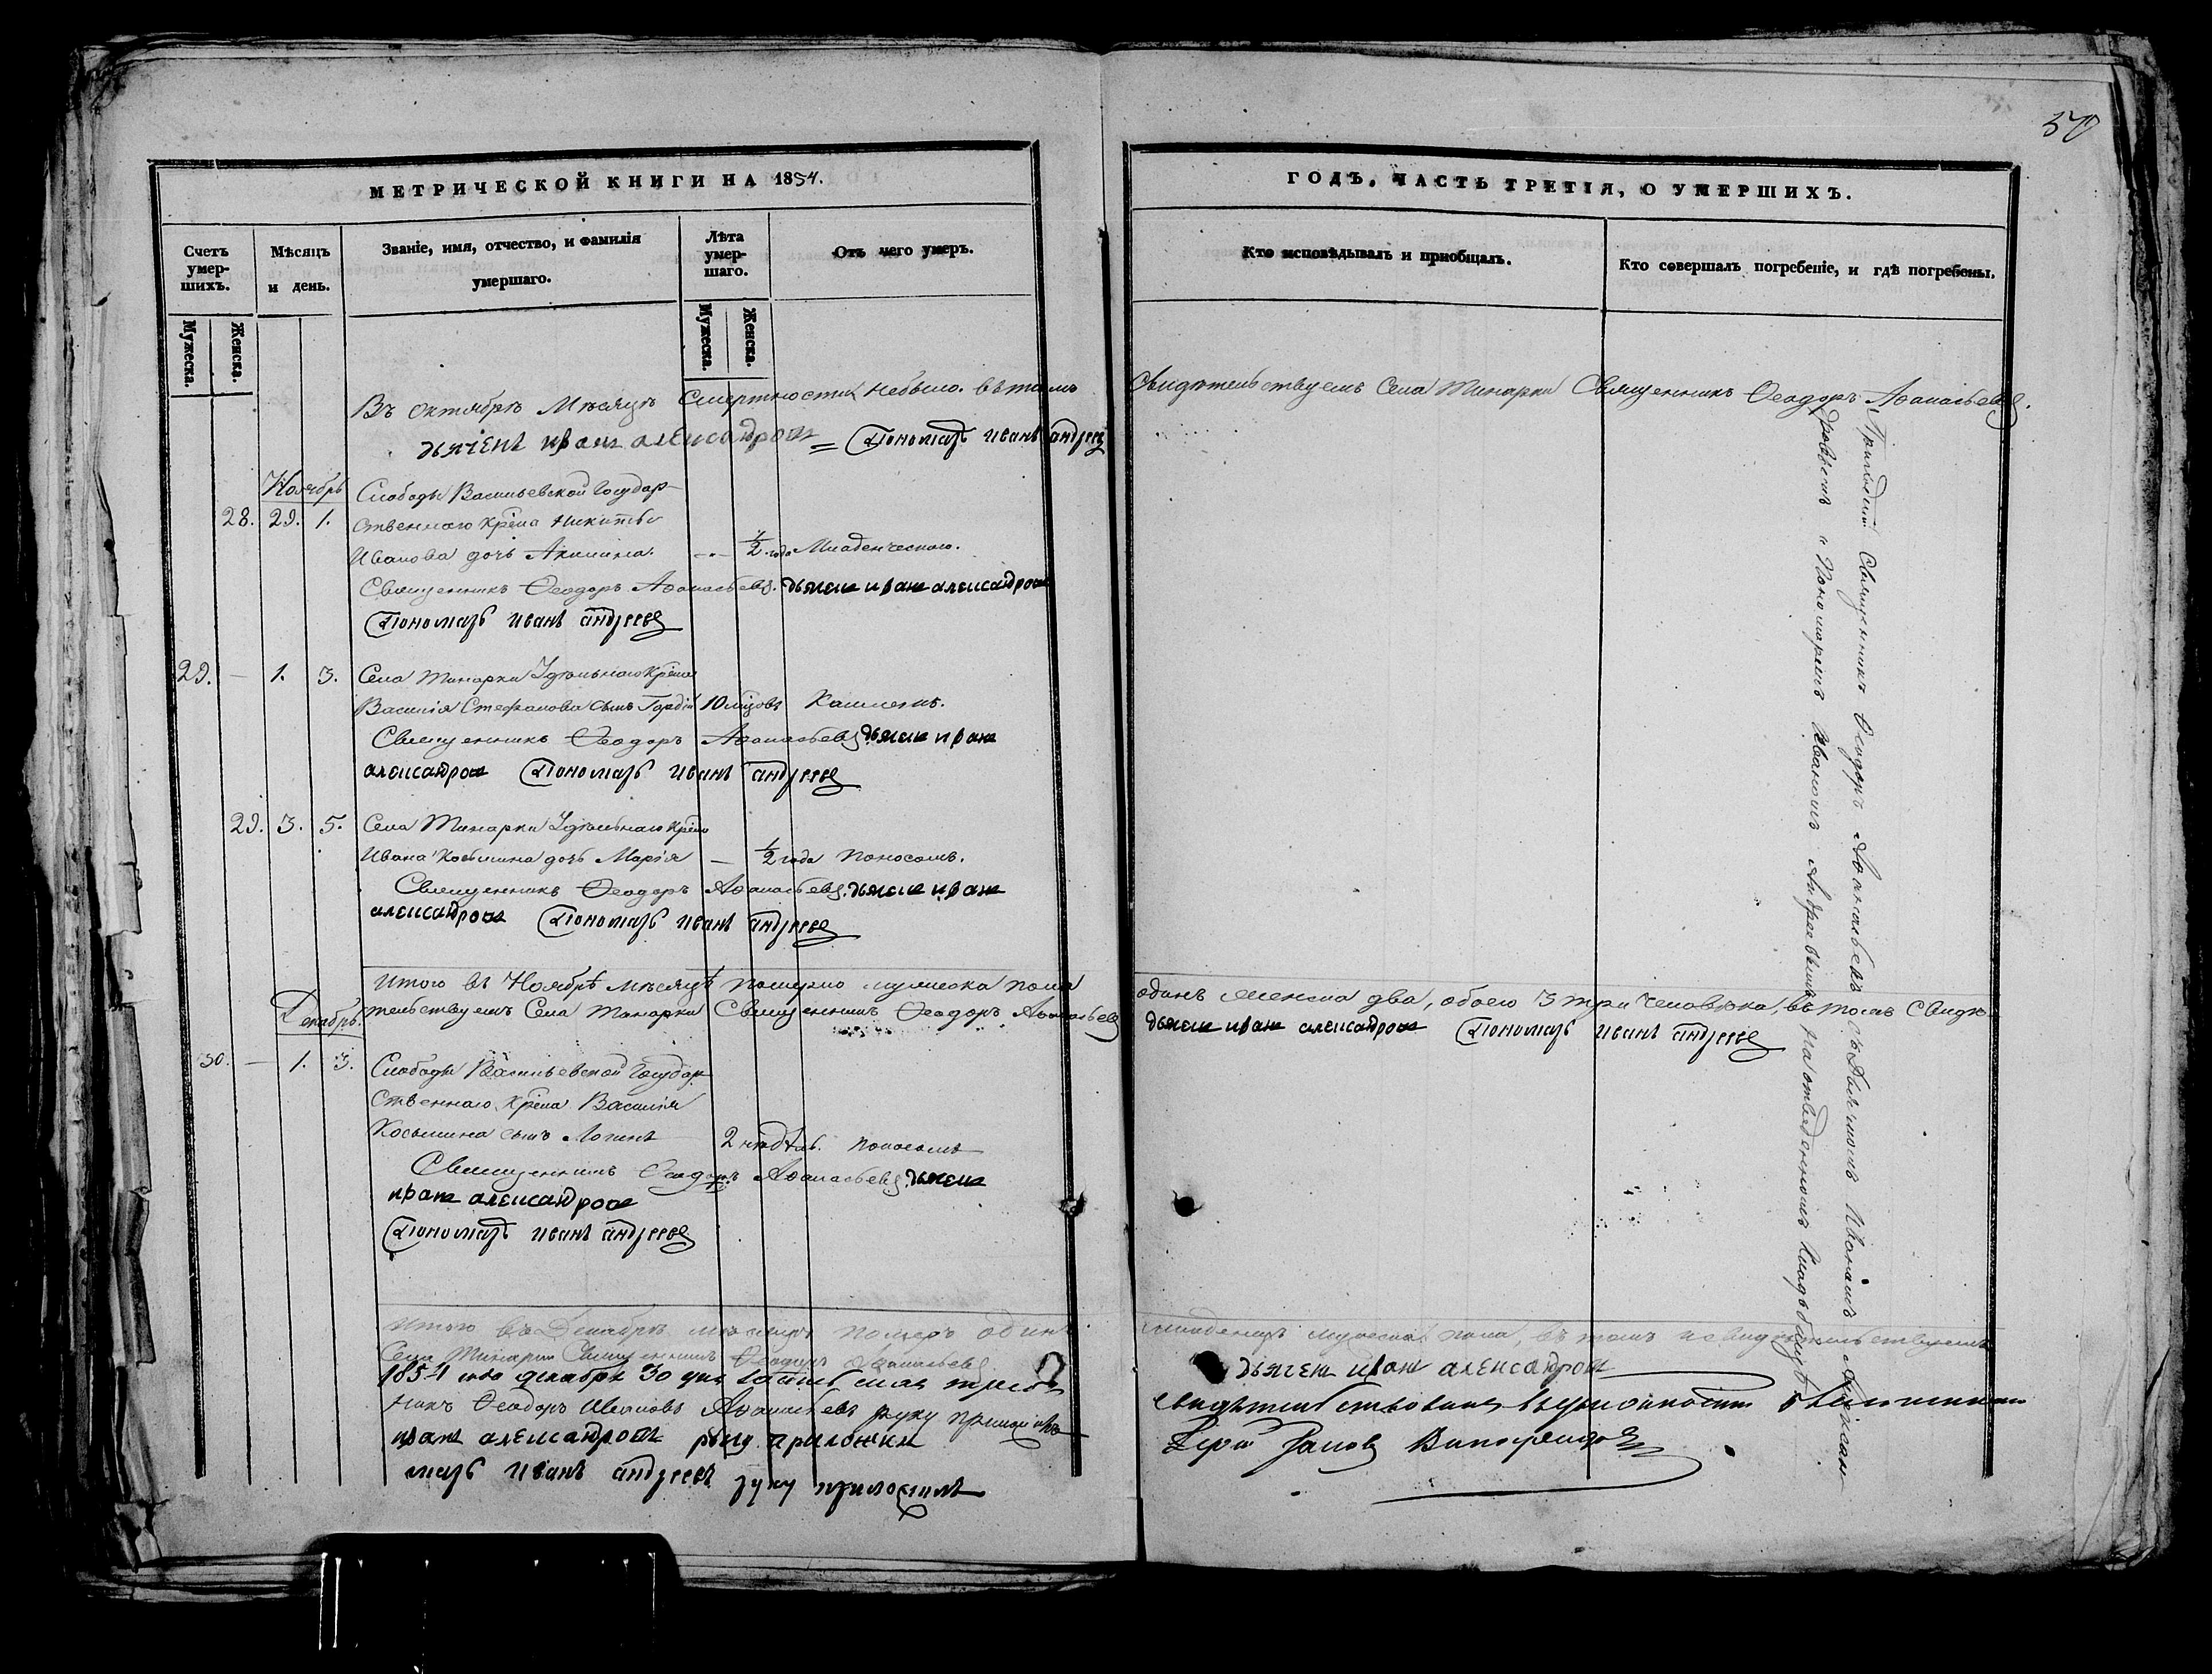 50
МЕТРИЧЕСКОЙ КНИГИ НА 1854.
Счетъ умер-шихъ.
Мѣсяцъ и день.
Званіе, имя, отчество, и фамилія умершаго.
Лѣта умер-шаго.
Отъ чего умеръ.
Мужеска.
Женска.
Мужеска.
Женска.
Въ октябрѣ Мѣсяцѣ Смертности небыло. въ томъ
дьячекъ иванъ александровъ = Пономарь иванъ андреевъ
Ноябрь
Слободы Васильевской Государ-
28. 29. 1. ственнаго крѣна Никиты
Иванова дочь Акилина. 1/2 года Младенческою.
Священникъ Ѳеодоръ Аѳанасьевъ. дьячекъ иванъ александровъ
Пономарь иванъ андреевъ
29. — 1. 3. Села Тинарки Удѣльнаго крѣна
Василія Стефанова сынъ Гордій 10 мѣцовъ Кашлемъ.
Священникъ Ѳеодоръ Аѳанасьевъ дьячекъ иванъ
александровъ Пономарь иванъ андреевъ
29. 3. 5. Села Тинарки Удѣльнаго крѣна
Ивана Косьмина дочь Марія — 1/2 года поносомъ.
Священникъ Ѳеодоръ Аѳанасьевъ. дьячекъ иванъ
александровъ Пономарь иванъ андреевъ
итого въ Ноябрѣ мѣсяцѣ померло мужеска пола
Декабрь.
тельствуемъ Села Тинарки Священникъ Ѳеодоръ Аѳанасьевъ
30. — 1. 3. Слободы Васильевской Государ-
ственнаго крѣна Василія
Косьмина сынъ Логинъ 2 недѣль. поносомъ
Священникъ Ѳеодоръ Аѳанасьевъ. дьячекъ
иванъ александровъ
Пономарь иванъ андреевъ
Итого въ Декабрѣ мѣсяцѣ померъ одинъ
Села Тинарки Священникъ Ѳеодоръ Аѳанасьевъ
1854 года декабря 30 дня
Ѳеодоръ Ивановъ Аѳанасьевъ руку приложилъ
иванъ александровъ руку приложилъ
марь иванъ андреевъ руку приложилъ
ГОДЪ, ЧАСТЬ ТРЕТІЯ, О УМЕРШИХЪ.
Кто исповѣдывалъ и пріобщалъ.
Кто совершалъ погребеніе, и гдѣ погребены.
Свидѣтельствуемъ Села Тинарки Священникъ Ѳеодоръ Аѳанасьевъ.
Приходскій Священникъ Ѳеодоръ Аѳанасьевъ съ Дьячкомъ Иваномъ Алексан-
дровымъ и Пономаремъ Иваномъ Андреевымъ на отведенномъ кладбищѣ
одинъ женска два, обоего 3 три человѣка, въ томъ Свидѣ-
дьячекъ иванъ александровъ Пономарь иванъ андреевъ
младенецъ мужеска пола, въ томъ и свидѣтельствуемъ
дьячекъ иванъ александровъ